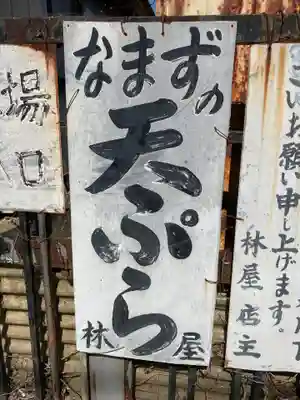 なまずの
天ぷら
林屋
場
口
お願い申し上げます。
林屋店主